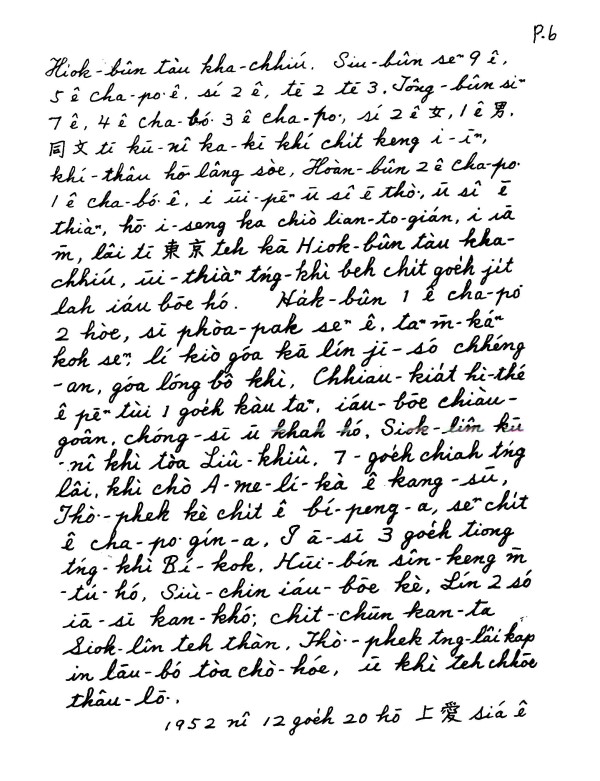 P.6
Hiok-bûn tàu kha-chhiú. Siu-bûn seⁿ 9 ê,
5 ê cha-po͘ ê, sí 2 ê, tē 2 tē 3. Tông-bûn siⁿ
7 ê, 4 ê cha-bó͘ 3 ê cha-po͘, sí 2 ê 女, 1 ê 男.
同文 tī kū-nî ka-kī khí chi̍t keng i-īⁿ,
khí-thâu hō͘ lâng sòe, Hoàn-bûn 2 ê cha-po͘
1 ê cha-bó͘ ê, i ūi-pēⁿ ū sî ē thò͘, ū sî ē
thiàⁿ, hō͘ i-seng ka chiò lian-to-gián, i iā
m̄, lâi tī 東京 teh kā Hiok-bûn tàu kha-
chhiú, ūi-thiàⁿ tńg-khì beh chi̍t goe̍h ji̍t
lah iáu bōe hó. Ha̍k-bûn 1 ê cha-po͘
2 hòe, sī phòa-pak seⁿ ê, taⁿ m̄-káⁿ
koh seⁿ, lí kiò góa kā lín jī-só chhéng
-an, góa lóng bô khì, Chhiau-kiat hì-thé
ê pēⁿ tùi 1 goe̍h kàu taⁿ, iáu-bōe chiàu-
goân, chóng-sī ū khah hó, Siok-lîm kū
-nî khì tòa Liû-khiû, 7-goe̍h chiah tńg
lâi, khì chò A-me-lí-kà ê kang-sū,
Thò͘-phek kè chi̍t ê bí-peng-a, seⁿ chi̍t
ê cha-po͘ gín-a, I ā-sī 3 goe̍h tiong
tńg-khì Bí-kok, Hūi-bín sîn-keng m̄
-tú-hó, Siù-chin iáu-bōe kè, Lín 2 só
iā-sī kan-khó͘; chit-chūn kan-ta
Siok-lîn teh thàn, Thò͘-phek tńg-lâi kap
in lāu-bó tòa chò-hóe, ū khì teh chhōe
thâu-lō͘.
1952 nî 12 goe̍h 20 hō 上愛 siá ê